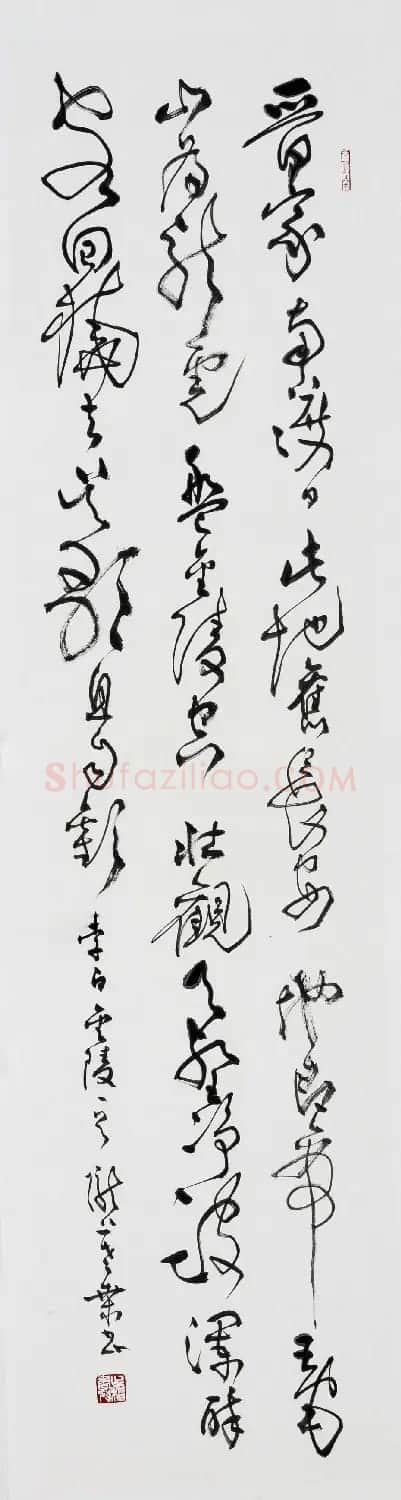 晉家南渡日此地舊長安地即帝王宅
山為龍虎盤金陵空壯觀天塹淨波瀾醉
客回橈去吳歌且自歡 李白金陵
Shufaziliao.COM